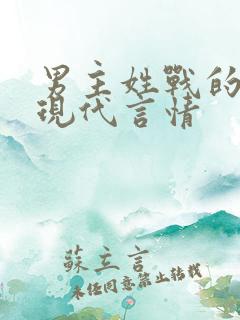 男主姓戰的
現代言情
蘇立言
未经同意禁止转载